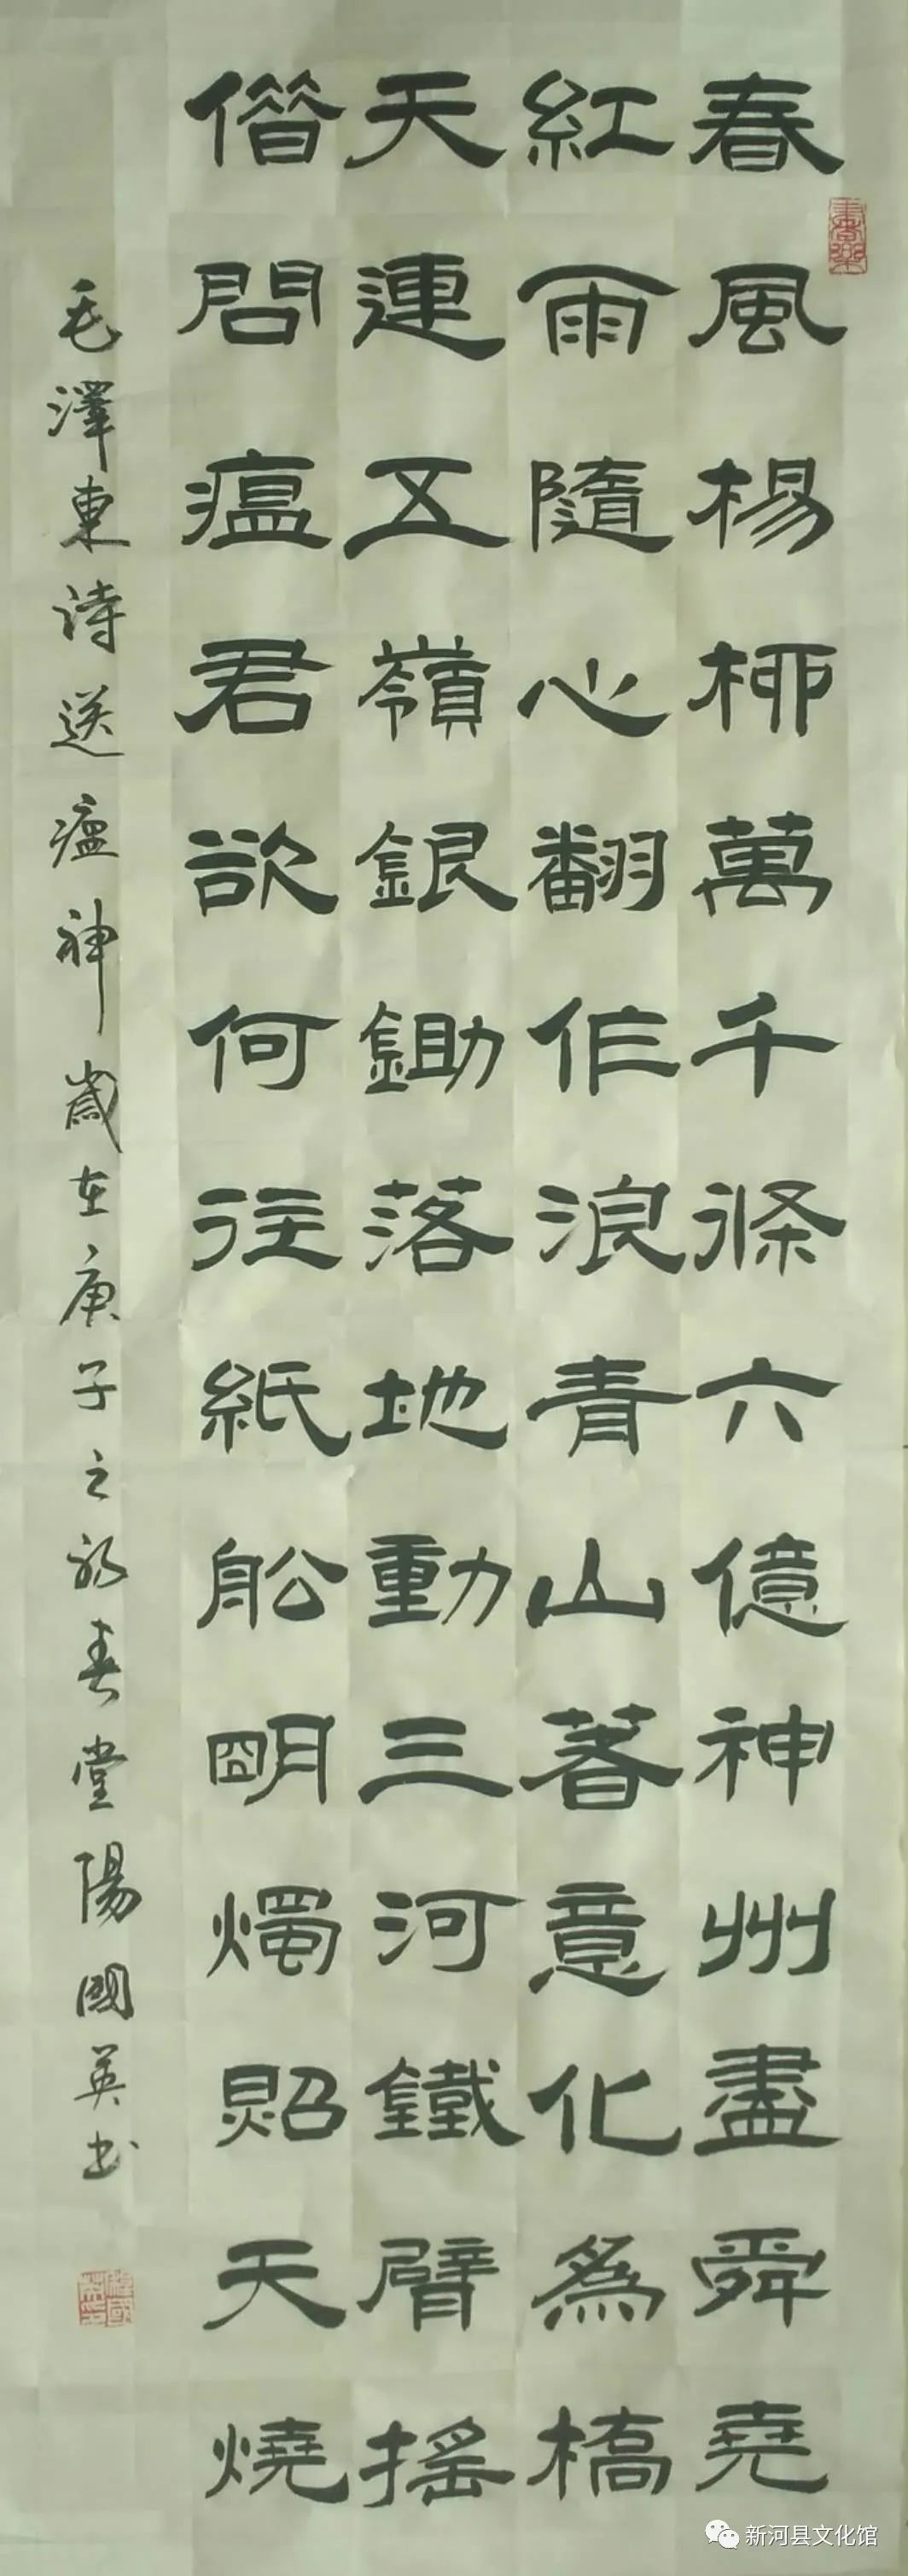 春風楊桺萬千條六億神州盡舜堯
紅雨隨心翻作浪青山著意化為橋
天連五嶺銀鋤落地動三河鐵臂搖
偕問瘟君欲何往紙舩明燭照天燒
毛澤東诗送瘟神歲在庚子之初春堂陽國英书
新河县文化馆